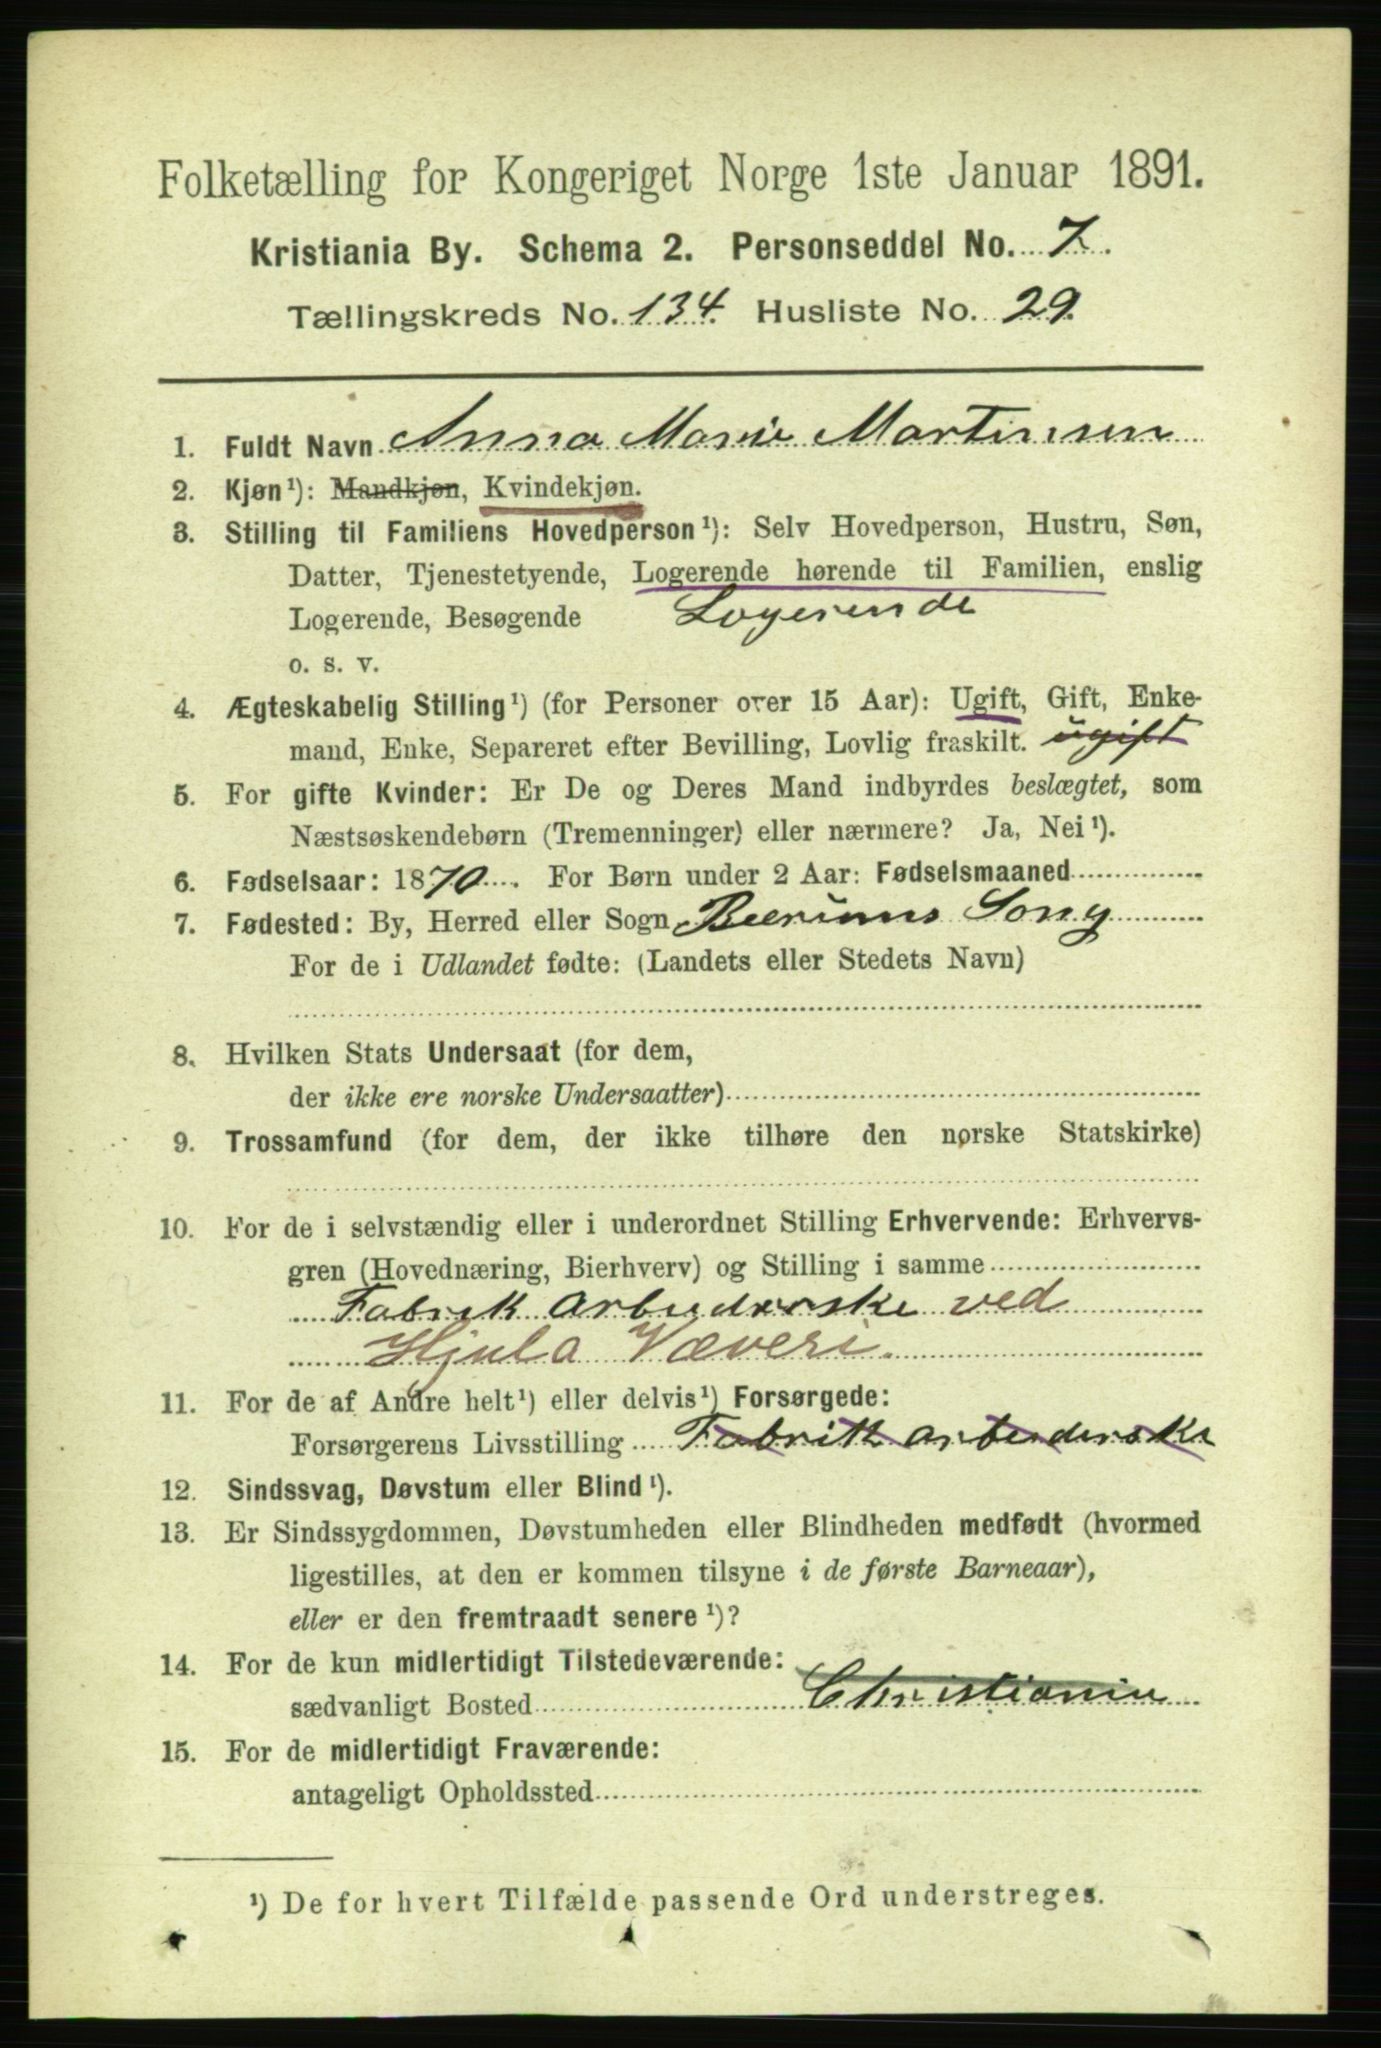 Folketælling for Kongeriget Norge 1ste Januar 1891.
Kristiania By. Schema 2. Personseddel No. 7.
Tællingskreds No. 134. Husliste No. 29.
1. Fuldt Navn Anna Marie Martinsen
2. Kjøn¹): Mandkjøn, Kvindekjøn.
3. Stilling til Familiens Hovedperson¹): Selv Hovedperson, Hustru, Søn,
Datter, Tjenestetyende, Logerende hørende til Familien, enslig
Logerende, Besøgende Logerende
o. s. v.
4. Ægteskabelig Stilling¹) (for Personer over 15 Aar): Ugift, Gift, Enke-
mand, Enke, Separeret efter Bevilling, Lovlig fraskilt. ugift
5. For gifte Kvinder: Er De og Deres Mand indbyrdes beslægtet, som
Næstsøskendebørn (Tremenninger) eller nærmere? Ja, Nei¹).
6. Fødselsaar: 1870. For Børn under 2 Aar: Fødselsmaaned
7. Fødested: By, Herred eller Sogn Beerums Song
For de i Udlandet fødte: (Landets eller Stedets Navn)
8. Hvilken Stats Undersaat (for dem,
der ikke ere norske Undersaatter)
9. Trossamfund (for dem, der ikke tilhøre den norske Statskirke)
10. For de i selvstændig eller i underordnet Stilling Erhvervende: Erhvervs-
gren (Hovednæring, Bierhverv) og Stilling i samme
Fabrik arbuderske ved
Hjula Væveri.
11. For de af Andre helt¹) eller delvis¹) Forsørgede:
Forsørgerens Livsstilling Fabrik arbuderske
12. Sindssvag, Døvstum eller Blind¹).
13. Er Sindssygdommen, Døvstumheden eller Blindheden medfødt (hvormed
ligestilles, at den er kommen tilsyne i de første Barneaar),
eller er den fremtraadt senere¹)?
14. For de kun midlertidigt Tilstedeværende:
sædvanligt Bosted Christiania
15. For de midlertidigt Fraværende:
antageligt Opholdssted
¹) De for hvert Tilfælde passende Ord understreges.